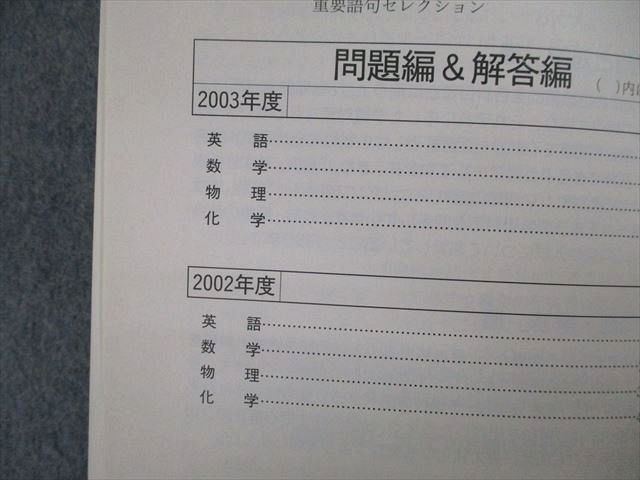 重要語句セレクション
問題編＆解答編 ( )内は
2003年度
英 語
数 学
物 理
化 学
2002年度
英 語
数 学
物 理
化 学